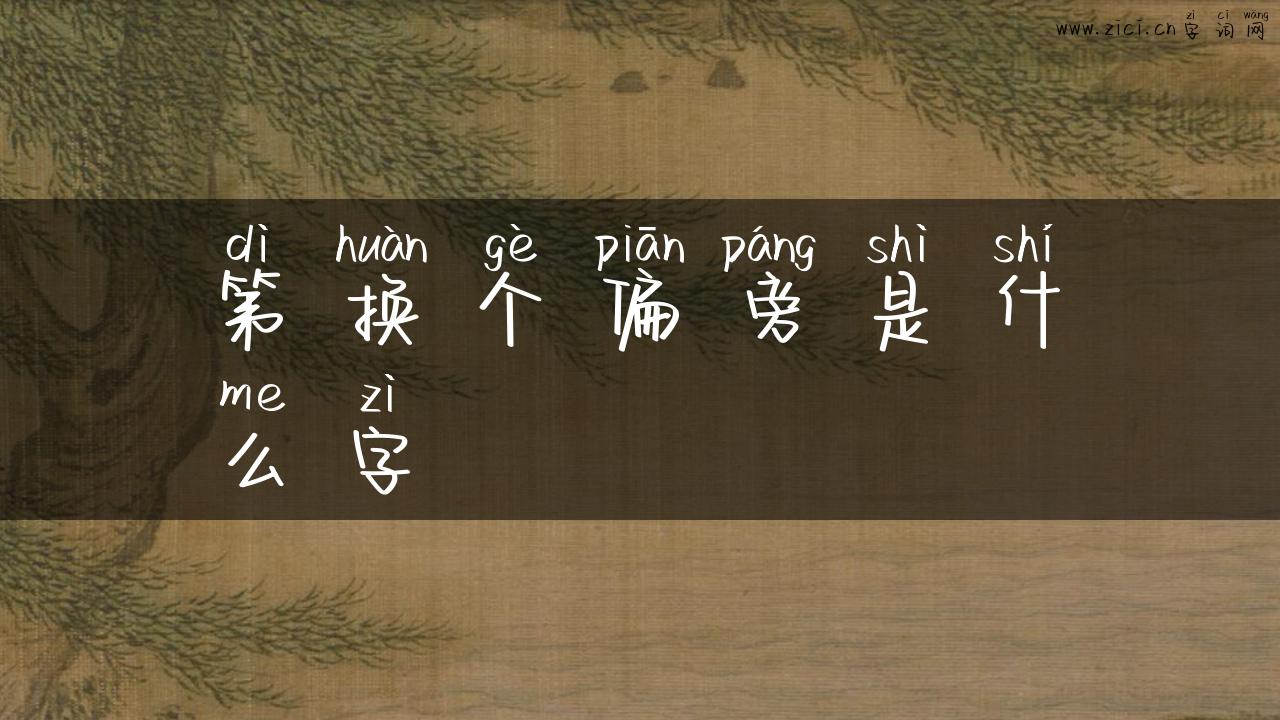 zì cí wǎng
www.zici.cn 字词网
dì huàn gè piān páng shì shí
第换个偏旁是什
me zì
么字